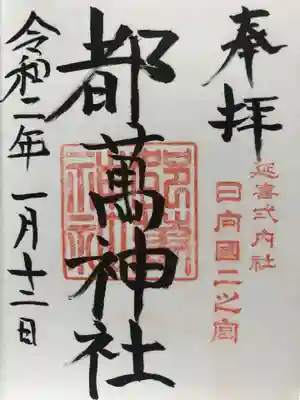 奉拝
延喜式内社
日向国二之宮
都萬神社
令和二年一月十二日